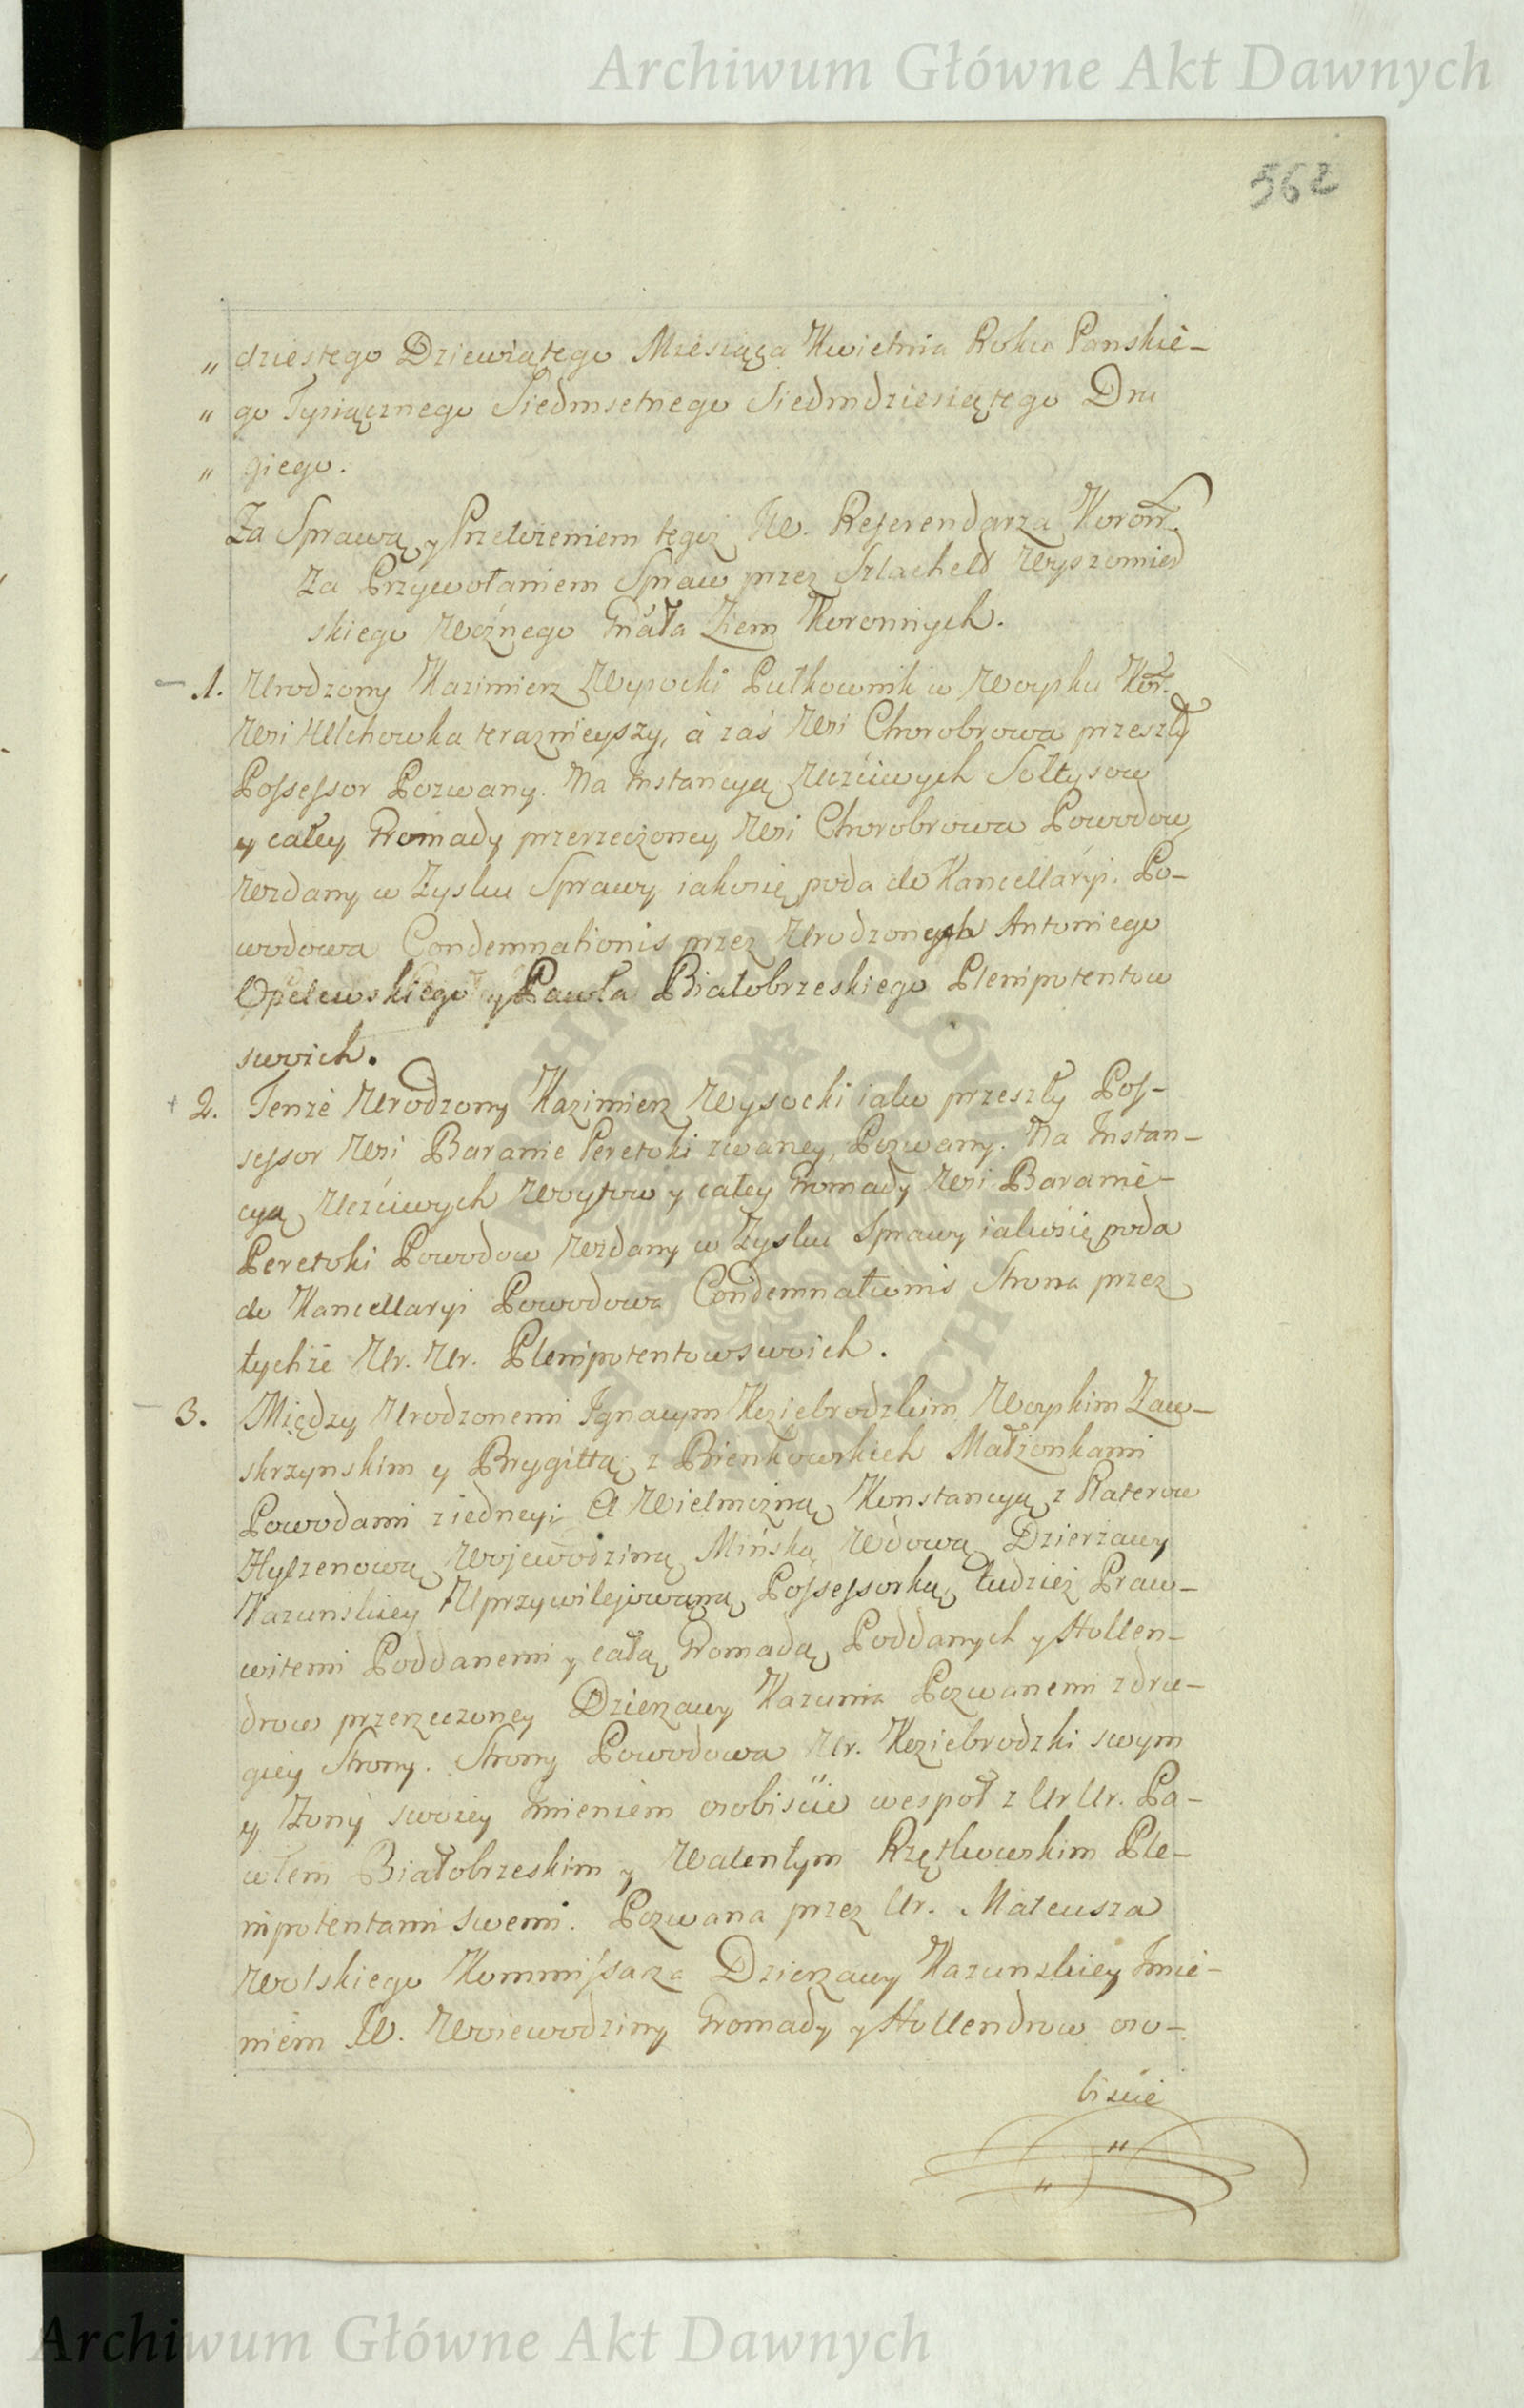 Archiwum Główne Akt Dawnych
562
„ dziestego Dziewiątego Miesiąca Kwietnia Roku Panskie-
„ go Tysiącznego Siedmsetnego Siedmdziesiątego Dru
„ giego.
Za Sprawą y Przełożeniem tegoż JW. Referendarza Koronn.
Za Przywołaniem Spraw przez Szlachetd Wyszomierd
skiego Woźnego Gnała Ziem Koronnych.
1. Urodzony Kazimierz Wysocki Pułkownik w Woysku Kor.
Wsi Ulchowka teraznieyszy, à zaś Wsi Chorobrowa przeszły
Possessor Pozwany. Na Instancyą Uczciwych Sołtysow
y całey Gromady przerzeczoney Wsi Chorobrowa Powodow
Wzdany w Zysku Sprawy iakosię poda do Kancellaryi. Po-
wodowa Condemnationis przez Urodzonych Antoniego
Opelewskiego y Pawła Białobrzeskiego Plenipotentow
swoich.
2. Tenże Urodzony Kazimierz Wysocki iako przeszły Pos-
sessor Wsi Baranie Peretoki zwaney, Pozwany. Na Instan-
cyą Uczciwych Woytow y całey Gromady Wsi Baranie-
Peretoki Powodow Wzdany w Zysku Sprawy iakosię poda
do Kancellaryi Powodowa Condemnationis Strona przez
tychże Ur. Ur. Plenipotentow swoich.
3. Między Urodzonemi Ignacym Koziebrodzkim Woyskim Zaw-
skrzynskim y Brygittą z Bienkowskich Małżonkami
Powodami z iedney; A Wielmożną Konstancyą z Platerow
Hylzenową Wojewodziną Mińską Wdową Dzierżawy
Kazunskiey Uprzywilejowaną Possessorką, tudzież Praw-
witemi Poddanemi y całą Gromadą Poddanych y Hollen-
drow przerzeczoney Dzierzawy Kazunia Pozwanemi z dru-
giey Strony. Strony Powodowa Ur. Koziebrodzki swym
y Zony swoiey Imieniem osobiscie wespoł z Ur Ur. Pa-
włem Białobrzeskim y Walentym Rzętkowskim Ple-
nipotentami swemi. Pozwana przez Ur. Mateusza
Wolskiego Kommissarza Dzierzawy Kazunskiey Imie-
niem JW. Woiewodziny Gromady y Hollendrow oso-
biscie
Archiwum Główne Akt Dawnych